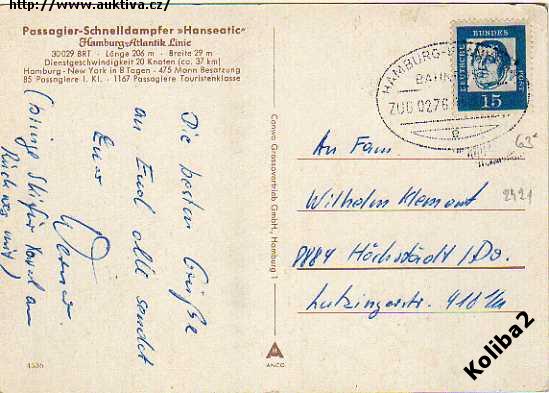 http://www.auktiva.cz/
Passagier-Schnelldampfer »Hanseatic«
Hamburg-Atlantik Linie
30029 BRT - Länge 206 m - Breite 29 m
Dienstgeschwindigkeit 20 Knoten (ca. 37 km)
Hamburg - New York in 8 Tagen - 475 Mann Besatzung
85 Passagiere I. Kl. - 1167 Passagiere Touristenklasse
Die besten Grüße
an Euch alle sendet
Euer
Werner
(bringe
mit)
4536
Conwa Grossovertrieb GmbH., Hamburg 1
ANCO
DEUTSCHE BUNDES POST
15
HAMBURG
BAHNPOST
ZUG 0276
e
63
2421
An Fam.
Wilhelm Klement
8884 Höchstädt/Do.
Lutzingerstr.
Koliba2